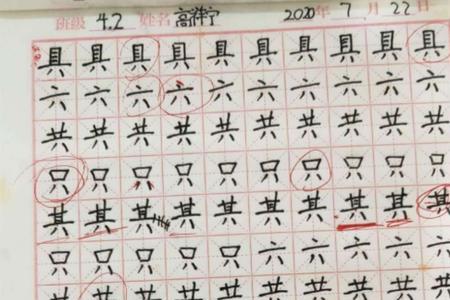 班级 4.2 姓名 高祥宁 2020年7月22日
具具具具具具具具具具
六六六六六六六六六六
共共共共共共共共共共
只只只只只只只只只只
其其其其其其其其其其
只只只只只六六六六六